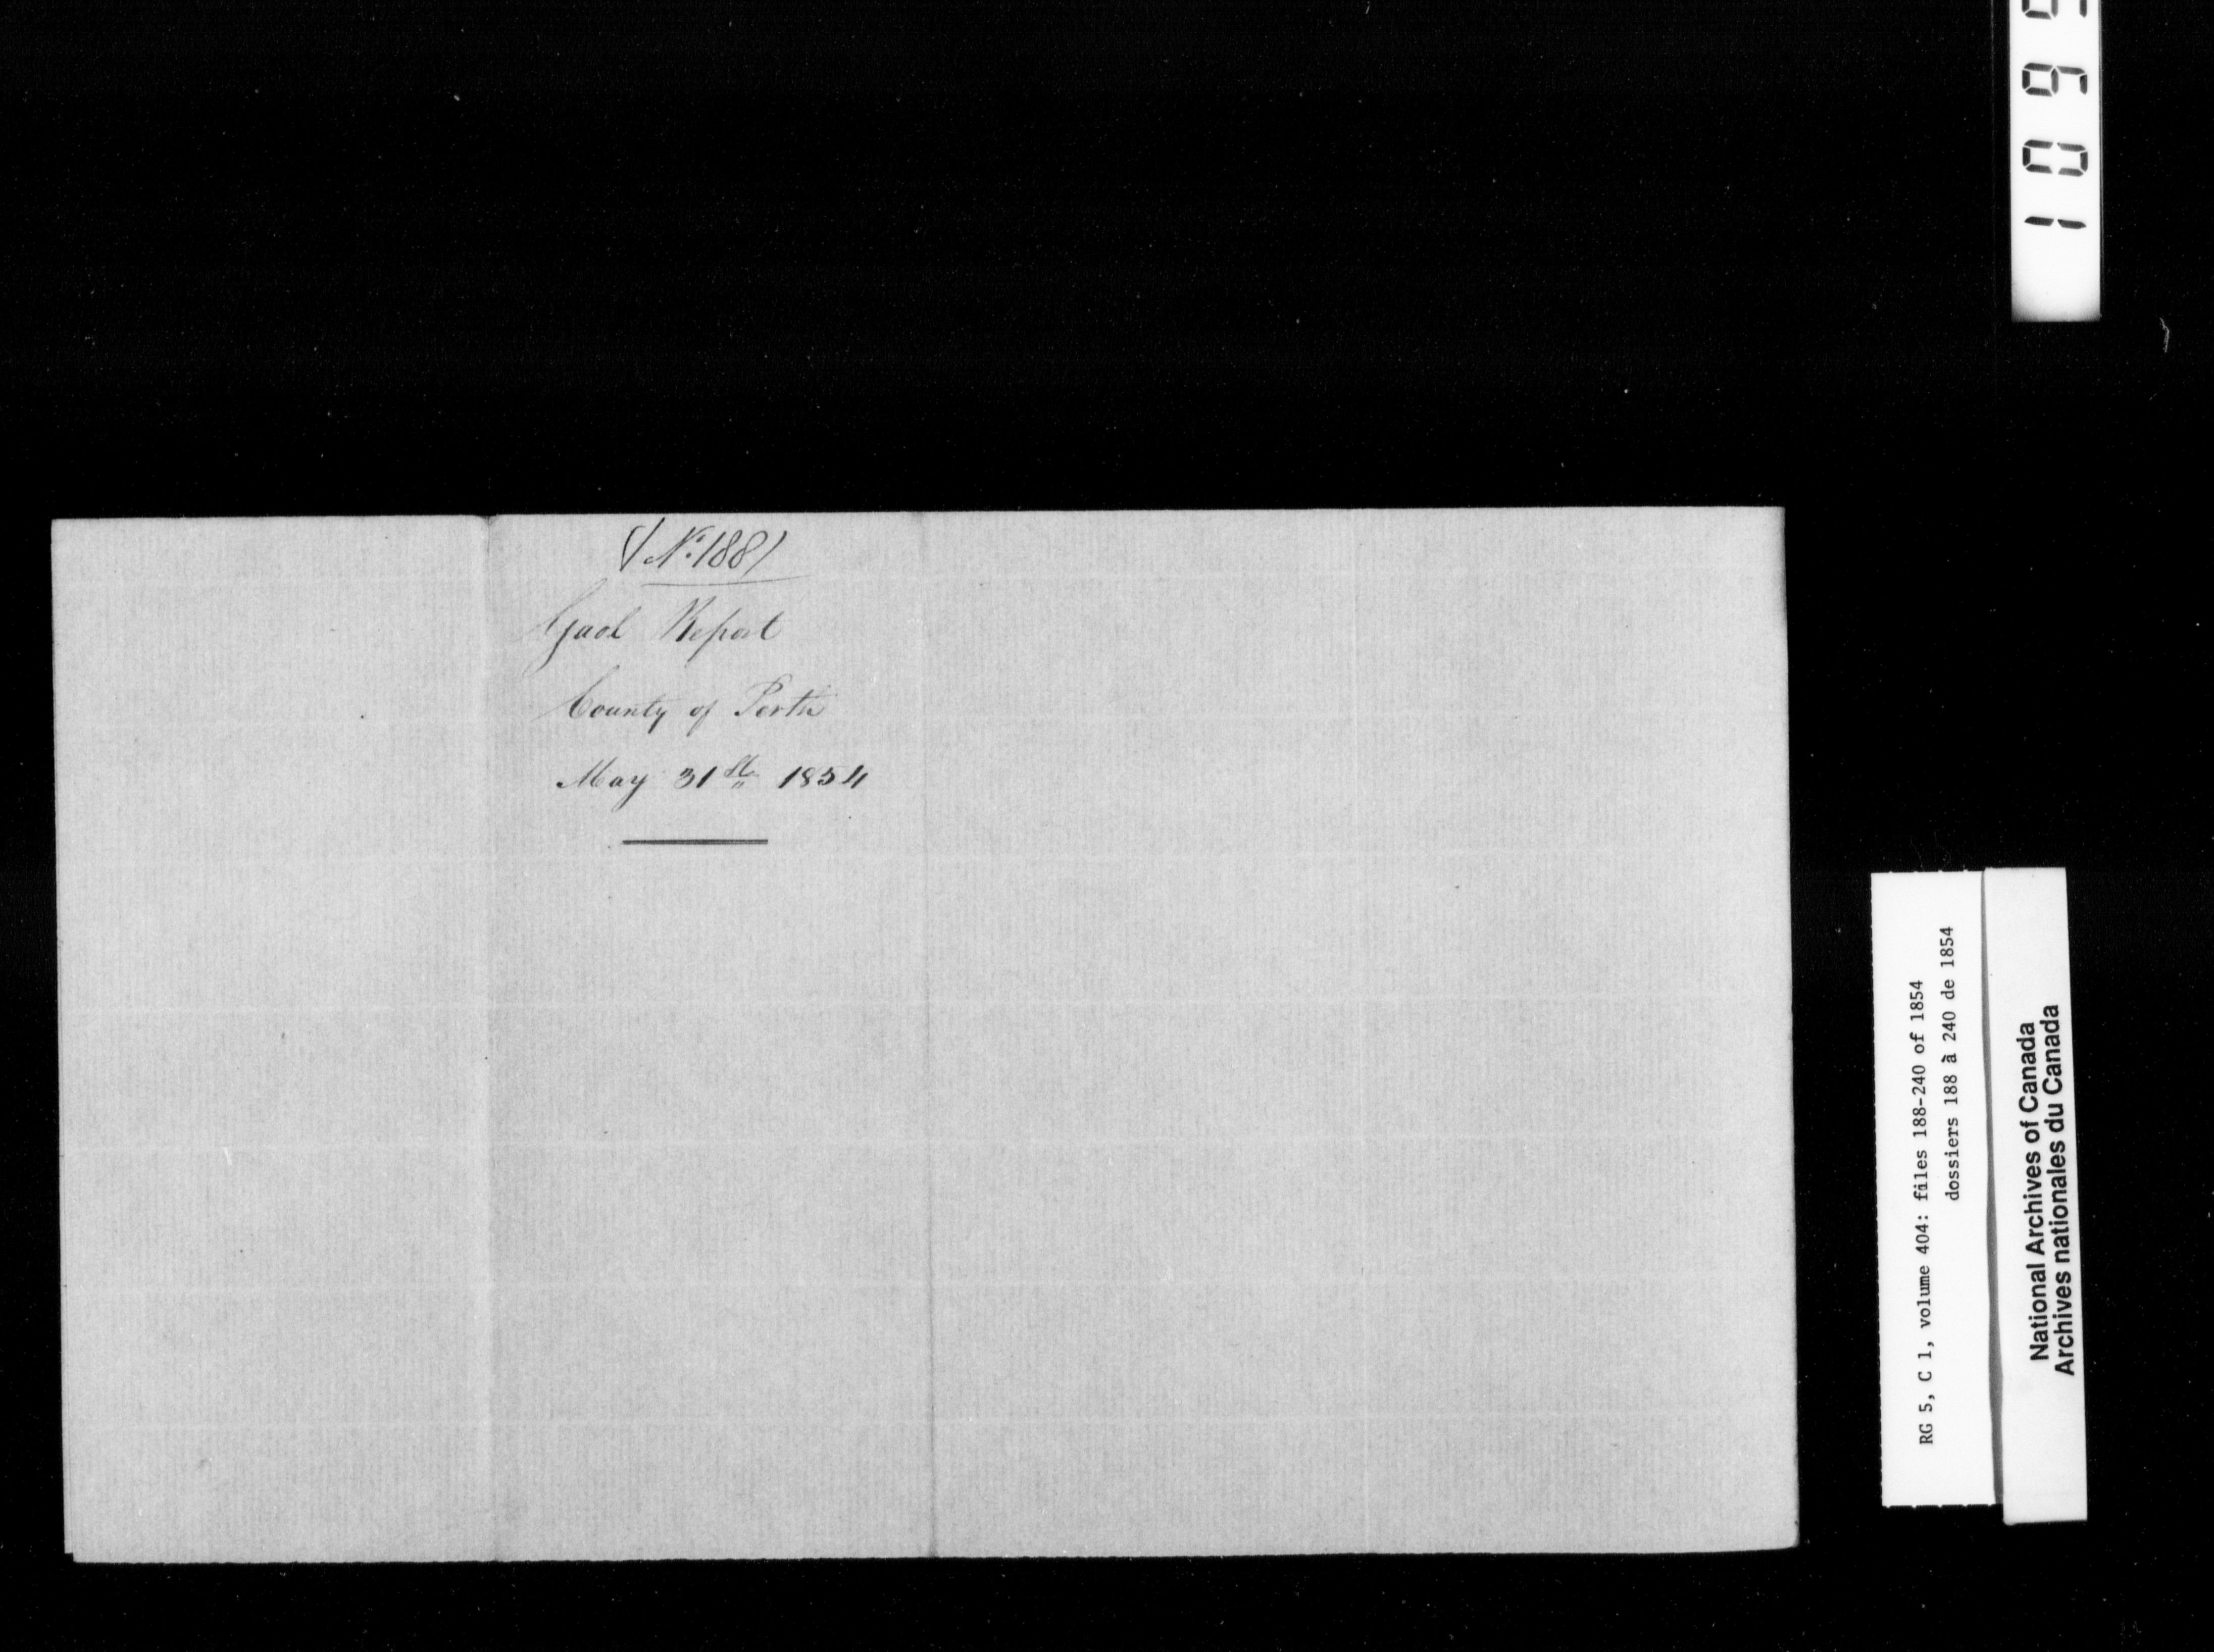 (No. 188)
Gaol Report
County of Perth
May 31st 1854
RG 5, C 1, volume 404: files 188-240 of 1854
dossiers 188 à 240 de 1854
National Archives of Canada
Archives nationales du Canada